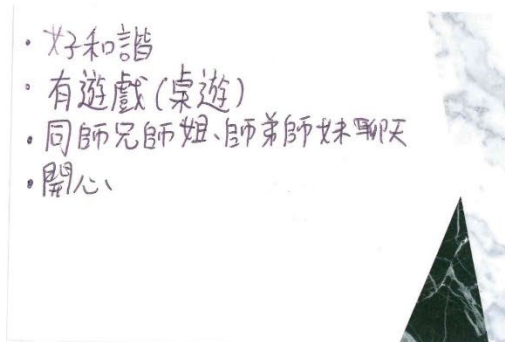 ・好和諧
・有遊戲(桌遊)
・同師兄師姐、師弟師妹聊天
・開心